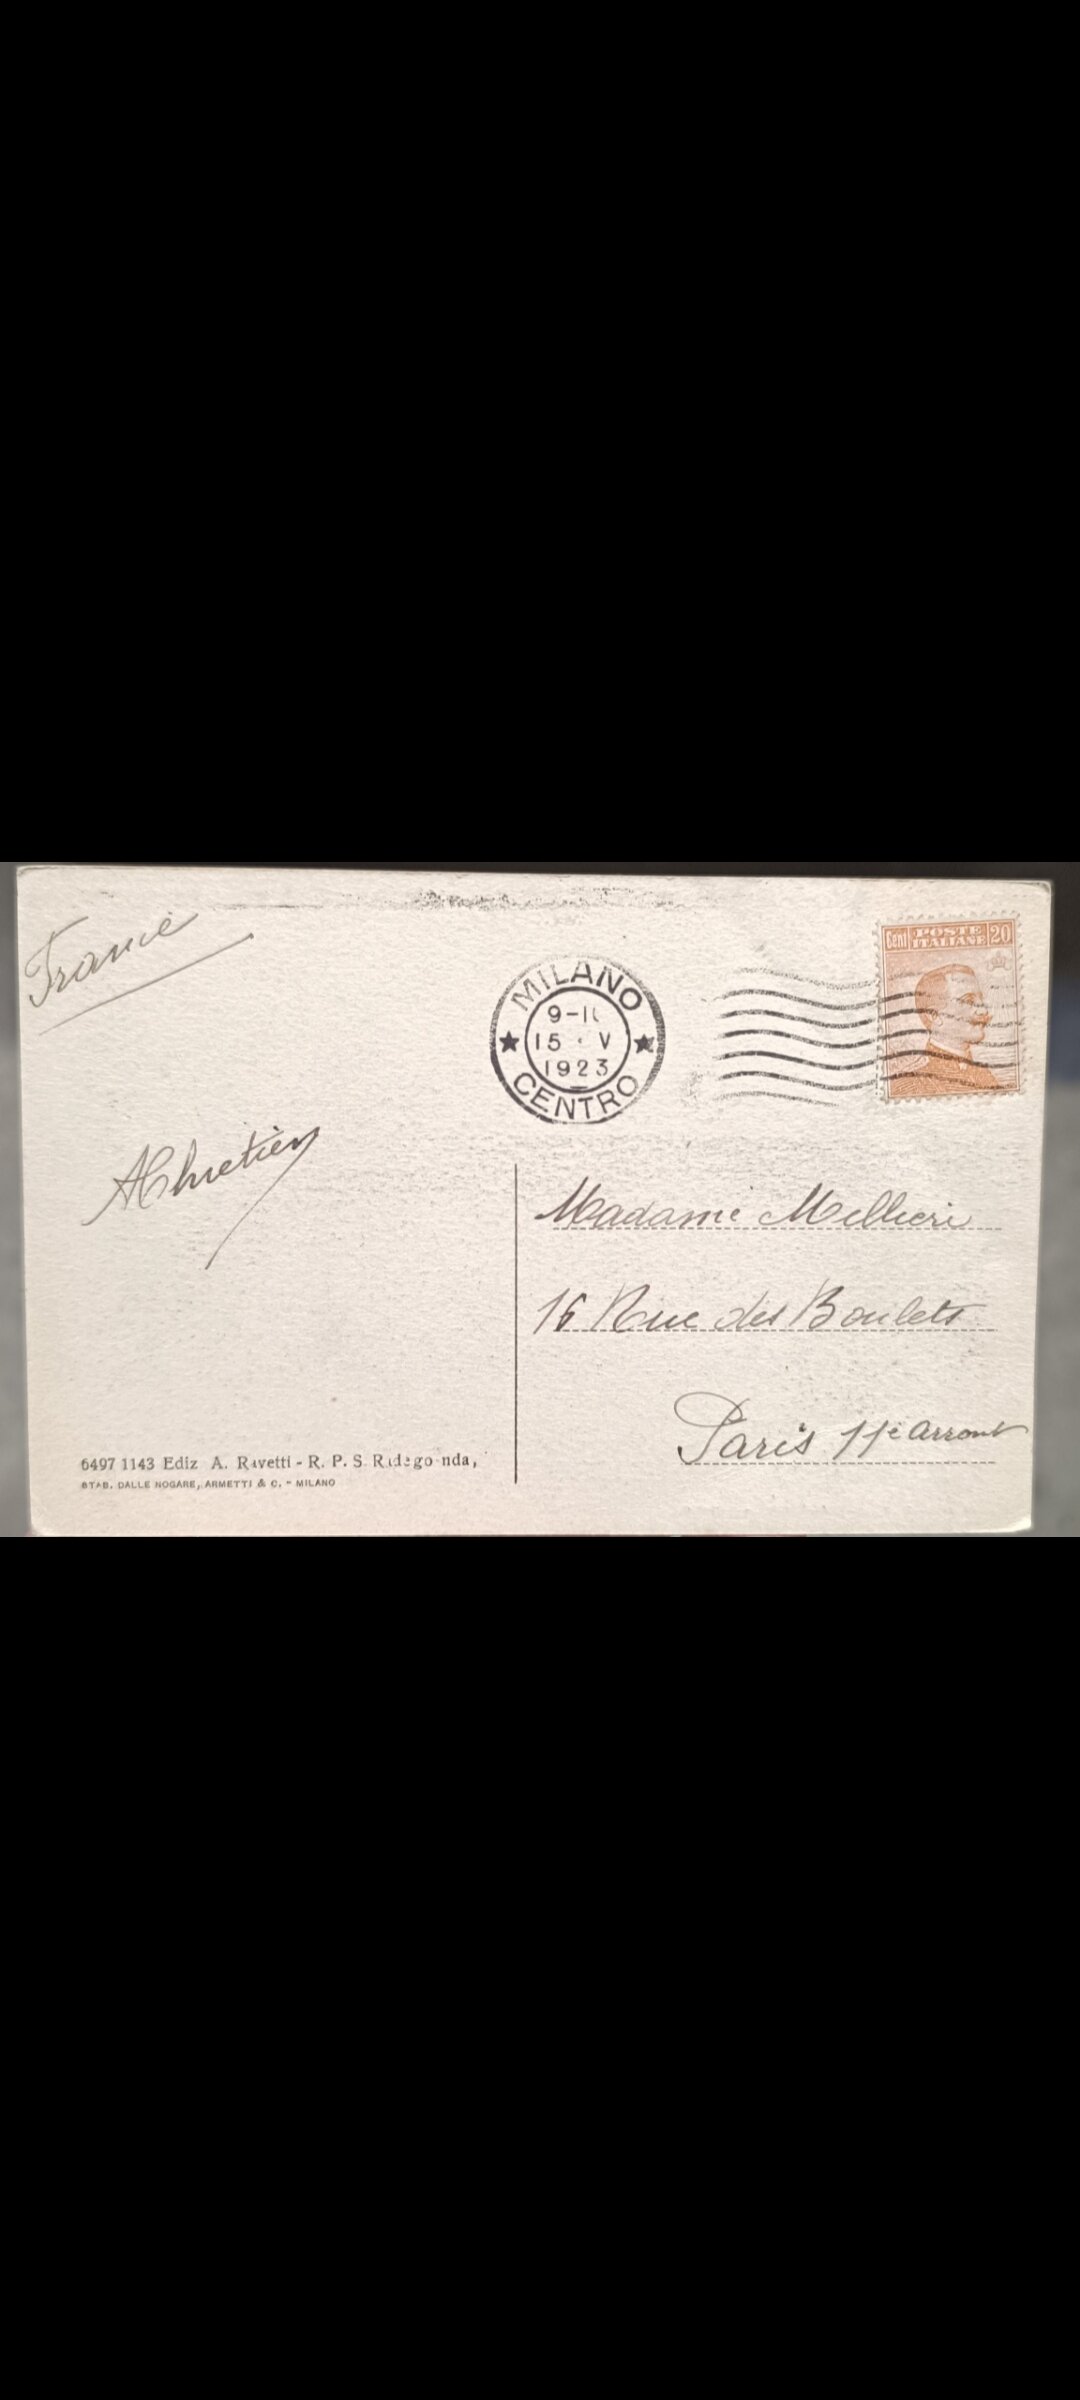 France
MILANO
9-1
15 · V
1923
CENTRO
Cent POSTE ITALIANE 20
AChretien
Madame
16 Rue des Boulets
Paris 11e arront
6497 1143 Ediz A. Ravetti - R. P. S. Radegonda,
STAB. DALLE NOGARE, ARMETTI & C. - MILANO